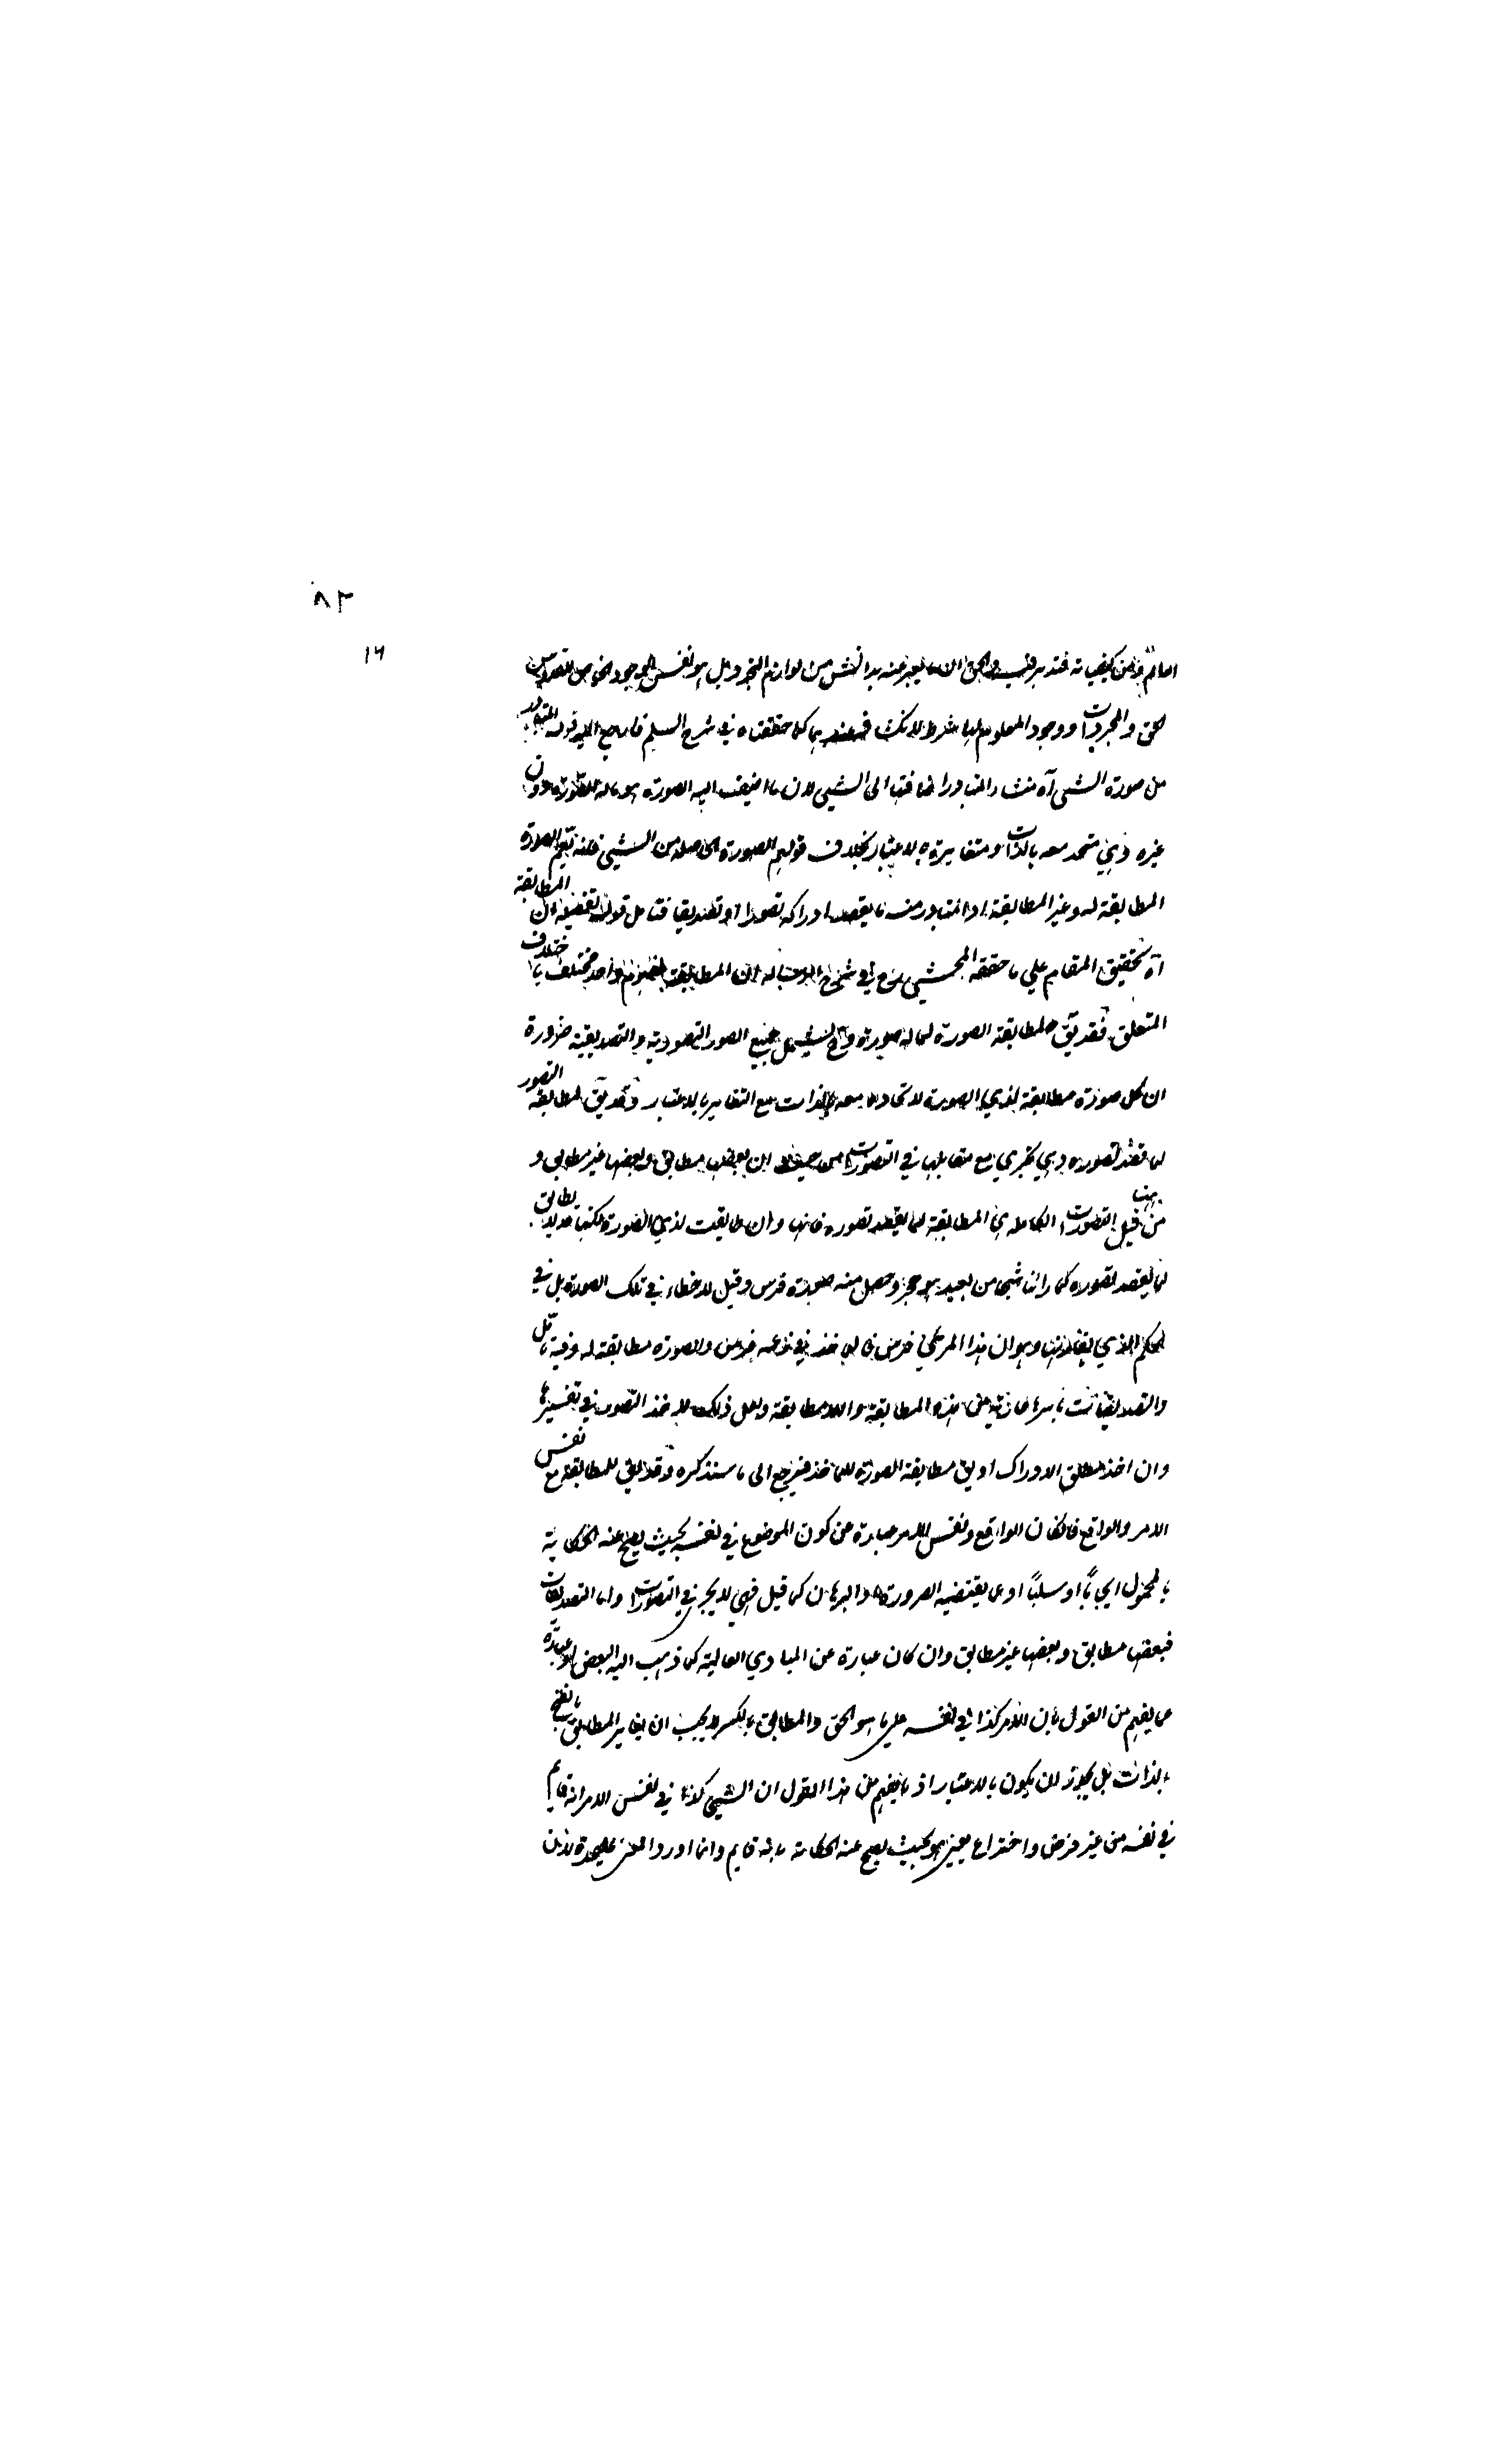 ٨٣
١٦
من لوازم التجرد بل هو نفس الوجود الخاص
والمجردات ووجود المعلوم لها شرط للانكشاف عندهم كما حققناه في شرح السلم فارجع اليه قوله المتبادر
من صورة الشيء آه منشاء التبادر اضافتها الى الشيء لان ما اضيف اليه الصورة هو ماله الصورة دون
غيره فهي متحد معه بالذات ومتغايرة بالاعتبار بخلاف قولهم الصورة الحاصلة من الشيء فانه يعم الصورة
المطابقة له وغير المطابقة اذ المتبادر منه ما يقصد ادراكه تصورا او تصديقا فتامل قوله تفصيله ان المطابقة
آه تحقيق المقام على ما حققه المحشي رح في شرح الرسالة ان المطابقة مفهوم واحد مختلف باختلاف
المتعلق فقد يق لمطابقة الصورة لما له صورة وح يشمل جميع الصور التصورية والتصديقية ضرورة
ان كل صورة مطابقة لذي الصورة لاتحادها معه بالذات مع التغاير بالاعتبار وقد يق لمطابقة التصور
لما قصد تصوره وهي تجري مع مقابلها في التصورات ان بعضها مطابق وبعضها غير مطابق و
من قبيل التصورات الكاملة المطابقة لما يقصد تصوره فانها وان طابقت لذي الصورة لكنها قد لا يطابق
لما يقصد تصوره كما رأينا شبحا من بعيد هو حجر وحصل منه صورة فرس وقيل لا خطاء في تلك الصورة بل في
الحكم الذي يقارنها وهو ان هذا المرئي فرس فالماخذ في زعمه فرس والصورة مطابقة له وفيه تامل
والتصديقات باسرها خارجة عن هذه المطابقة واللامطابقة ولعل ذلك لاخذ التصور في تفسيرها
وان اخذ مطلق الادراك او يق مطابقة الصورة للماخذ فيرجع الى ما سنذكره وقد يق للمطابقة مع نفس
الامر والواقع فان كان الواقع ونفس الامر عبارة عن كون الموضوع في نفسه بحيث يصح عنه الحكاية
بالمحمول ايجابا او سلبا او عما يقتضيه الضرورة او البرهان كما قيل فهي لا يجري في التصورات واما التصديقات
فبعضها مطابق وبعضها غير مطابق وان كان عبارة عن المبادي العالية كما ذهب اليه البعض او عبارة
عما يفهم من القول بان الامر كذا في نفسه على ما هو الحق والمطابق بالكسر لا يجب ان يغاير المطابق بالفتح
بالذات بل يجوز ان يكون بالاعتبار اذ ما يفهم من هذا القول ان الشيء كذا في نفس الامر انه قايم
في نفسه من غير فرض واختراع يعني هو بحيث يصح عنه الحكاية بانه قايم وانما اورد